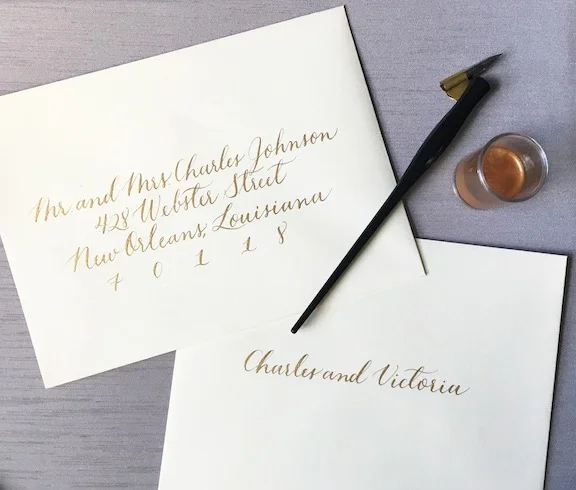 Mr. and Mrs. Charles Johnson
428 Webster Street
New Orleans, Louisiana
7 0 1 1 8
Charles and Victoria